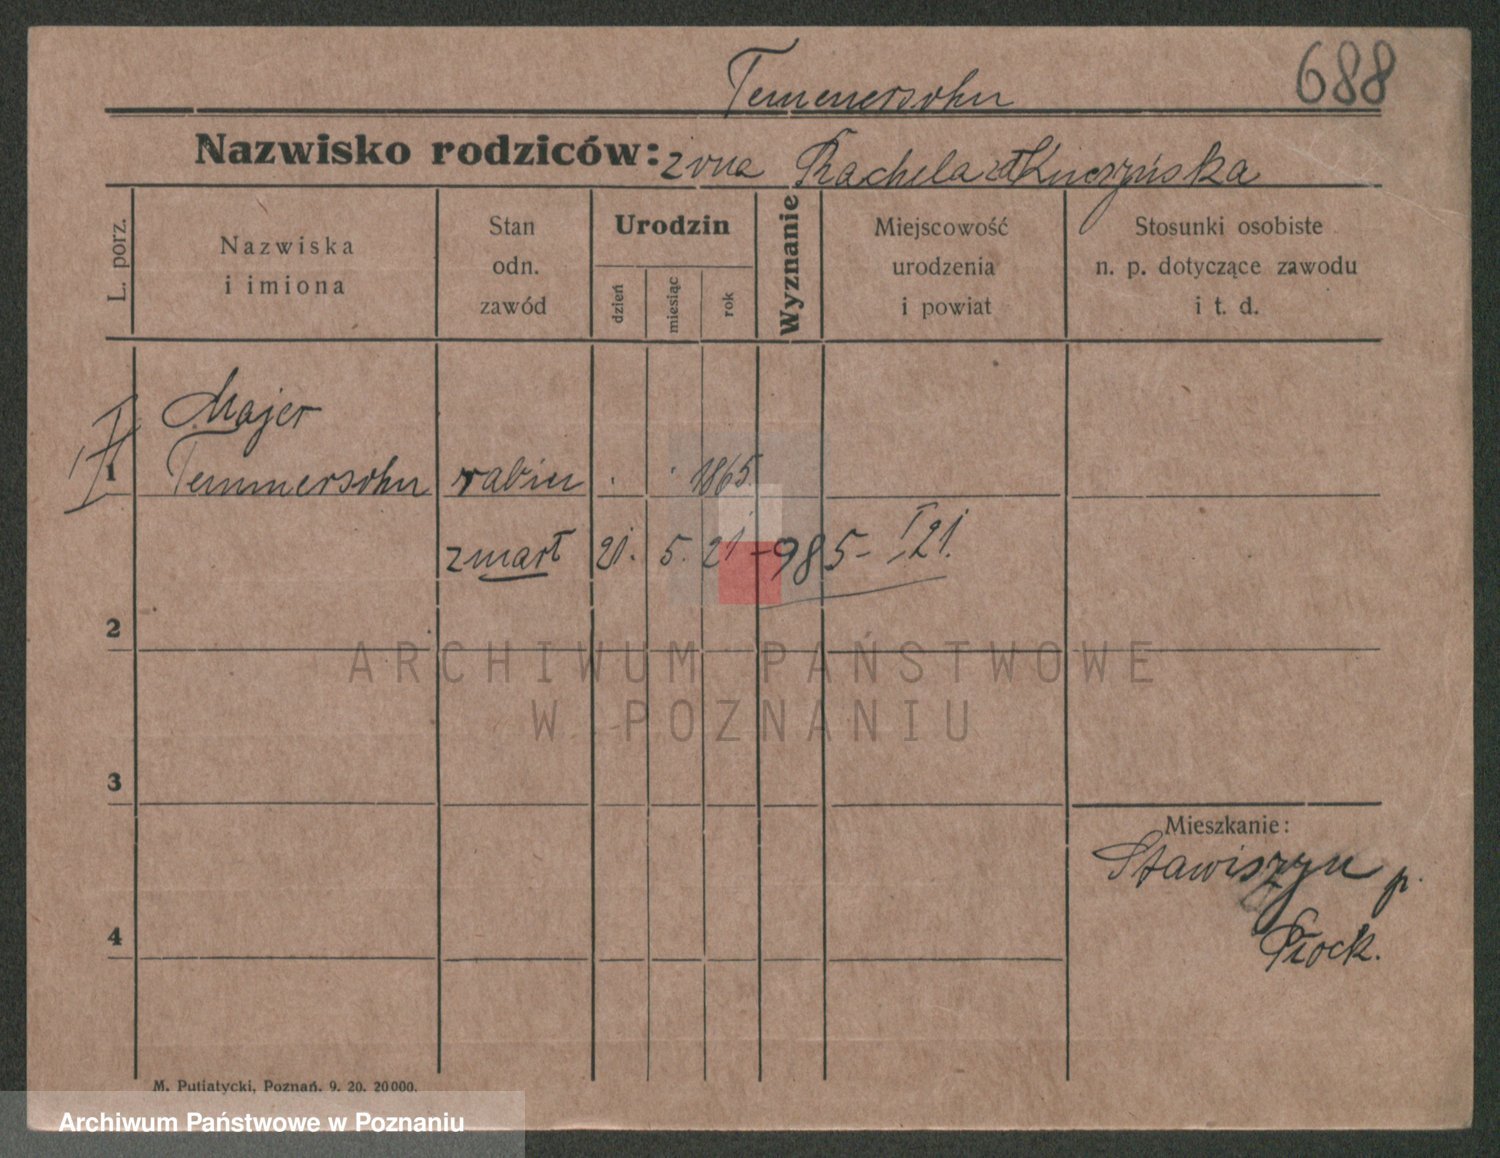 Temmersohn 688
Nazwisko rodziców: żona Rachela zd Kuczyńska
L. porz.
Nazwiska
i imiona
Stan
odn.
zawód
Urodzin
dzień
miesiąc
rok
Wyznanie
Miejscowość
urodzenia
i powiat
Stosunki osobiste
n. p. dotyczące zawodu
i t. d.
Majer
1 Temmersohn rabin . . 1865
zmarł 21. 5. 21 - 985 - I 21.
2
3
Mieszkanie:
Stawiszyn p.
4
Płock.
M. Putiatycki, Poznań. 9. 20. 20000.
ARCHIWUM PAŃSTWOWE
W POZNANIU
Archiwum Państwowe w Poznaniu